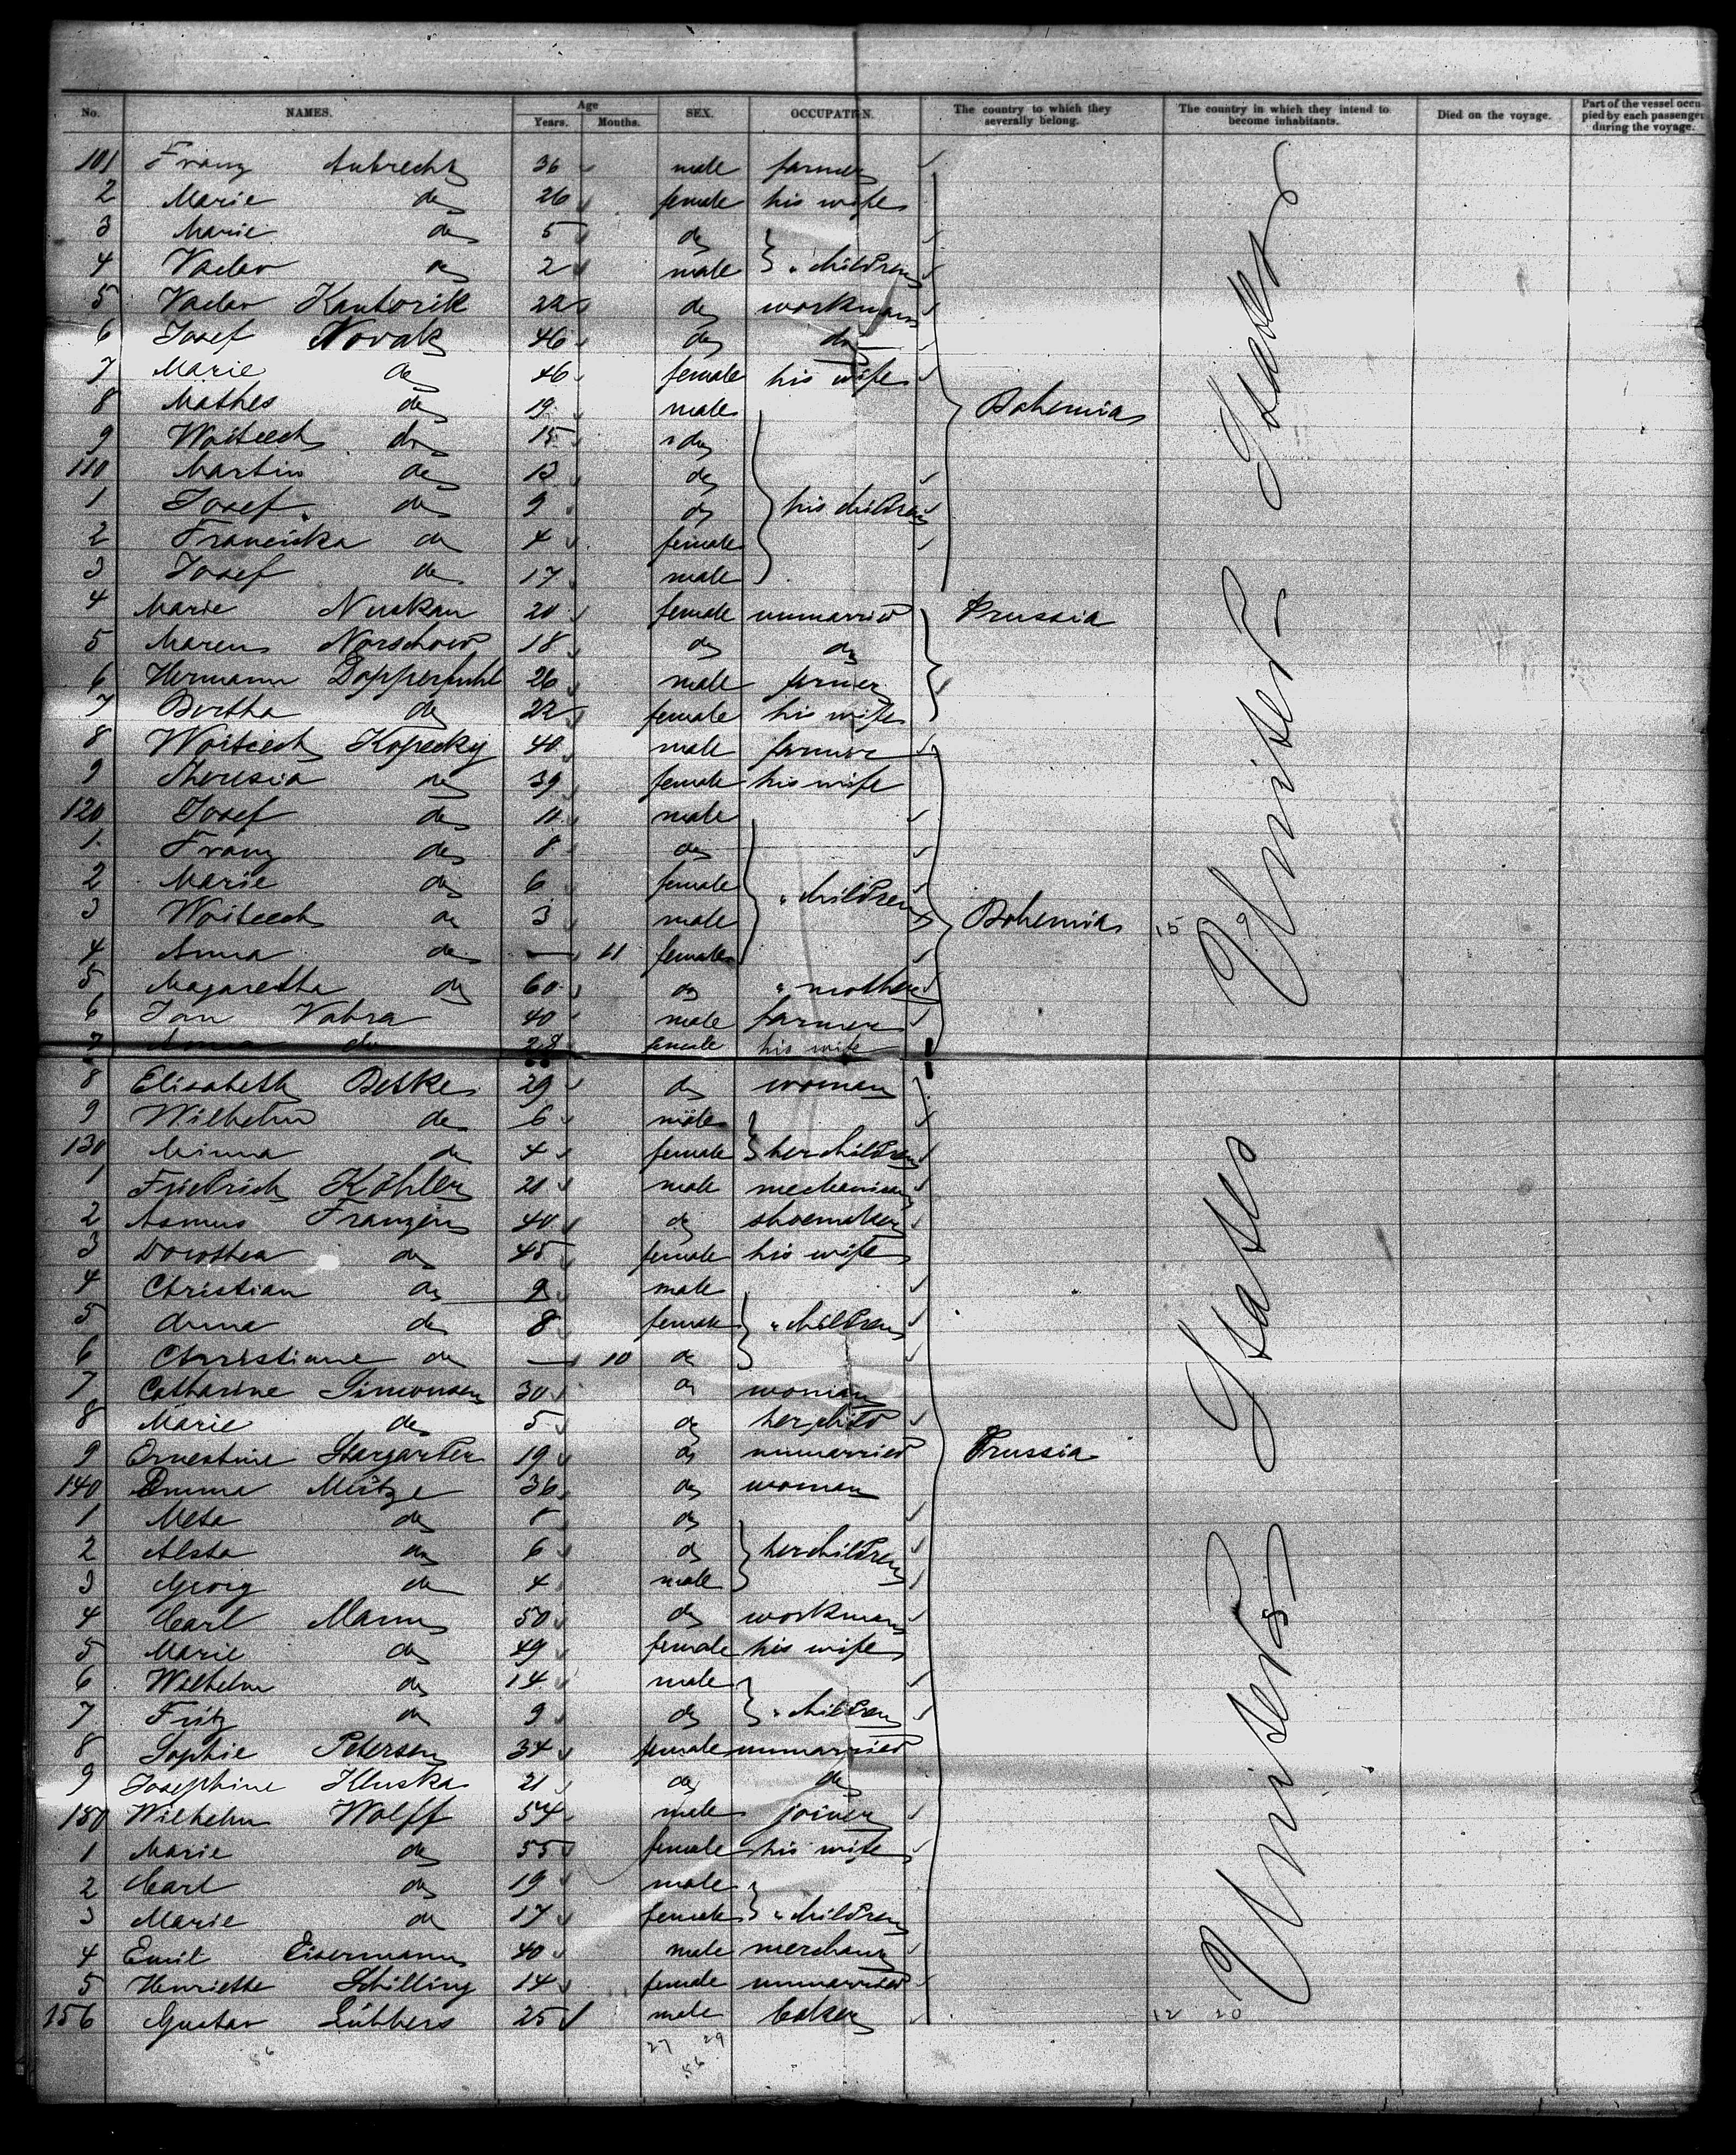 No. NAMES. Age Years. Months. SEX. OCCUPATION. The country to which they severally belong. The country in which they intend to become inhabitants. Died on the voyage. Part of the vessel occupied by each passenger during the voyage.
101 Franz Aubrecht 36 male farmer
2 Marie do 26 female his wife
3 Marie do 5 do
4 Vaclav do 2 male " children
5 Vaclav Kantorik 22 do workman
6 Josef Novak 46 do do
7 Marie do 46 female his wife
8 Mathes do 19 male Bohemia
9 Woitech do 15 do
110 Martin do 13 do
1 Josef do 9 do his children
2 Franciska do 4 female
3 Josef do 17 male
4 Marie Nuskan 20 female unmarried Prussia
5 Maren Norschow 18 do do
6 Hermann Dopperfuhl 26 male farmer
7 Bertha do 22 female his wife
8 Woitech Kopecky 40 male farmer
9 Theresia do 39 female his wife
120 Josef do 11 male
1 Franz do 8 do
2 Marie do 6 female " children
3 Woitech do 3 male Bohemia 15 9
4 Anna do — 11 female
5 Magaretha do 60 do " mother
6 Jan Vabra 40 male farmer
7 Anna do 28 female his wife
8 Elisabeth Betke 29 do woman
9 Wilhelm do 6 male
130 Minna do 4 female her children
1 Friedrich Köhler 21 male mechanican
2 Asmus Franzen 40 do shoemaker
3 Dorothea do 45 female his wife
4 Christian do 9 male
5 Anna do 8 female " children
6 Christiane do — 10 do
7 Catharine Simonsen 30 do woman
8 Marie do 5 do her child
9 Ernestine Stargarter 19 do unmarried Prussia
140 Emma Mütze 36 do woman
1 Meta do 8 do
2 Alsta do 6 do her children
3 Georg do 4 male
4 Carl Mann 50 do workman
5 Marie do 49 female his wife
6 Wilhelm do 14 male
7 Fritz do 9 do " children
8 Sophie Petersen 34 female unmarried
9 Josephine Kluska 21 do do
150 Wilhelm Wolff 54 male joiner
1 Marie do 55 female his wife
2 Carl do 19 male
3 Marie do 17 female " children
4 Emil Eisermann 40 male merchant
5 Henriette Schilling 14 female unmarried
156 Gustav Lübbers 25 male baker 12 20
27 29
86 56
United States
United States